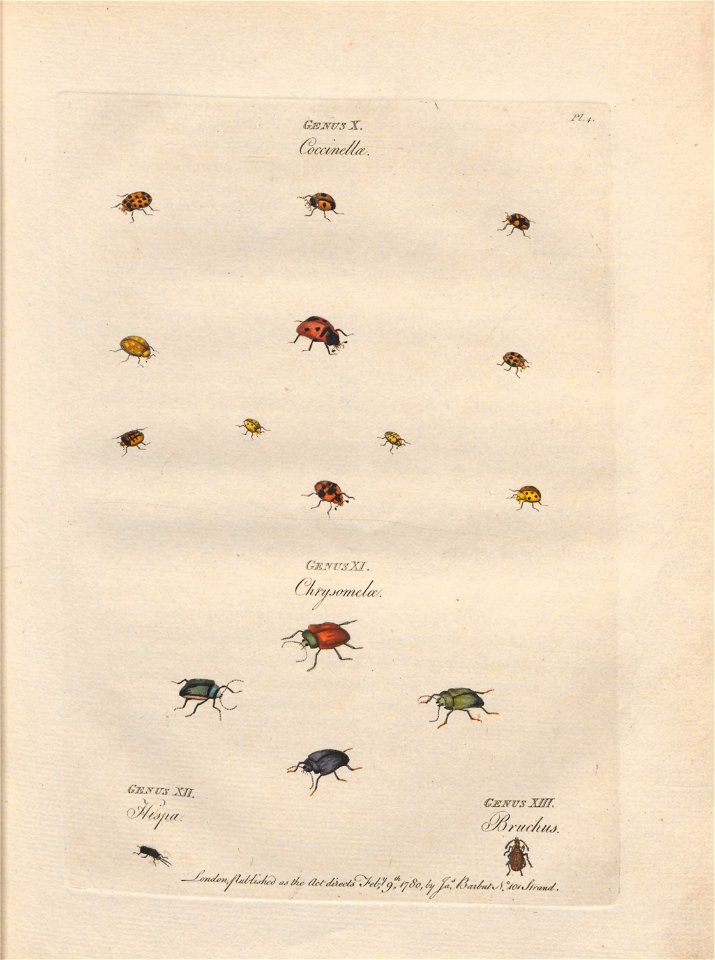 GENUS X.
Pl. 4.
Coccinellæ.
GENUS XI.
Chrysomelæ.
GENUS XII.
Hispa.
GENUS XIII.
Bruchus.
London, Published as the Act directs Feby. 9th. 1780, by Jas. Barbut No. 101 Strand.